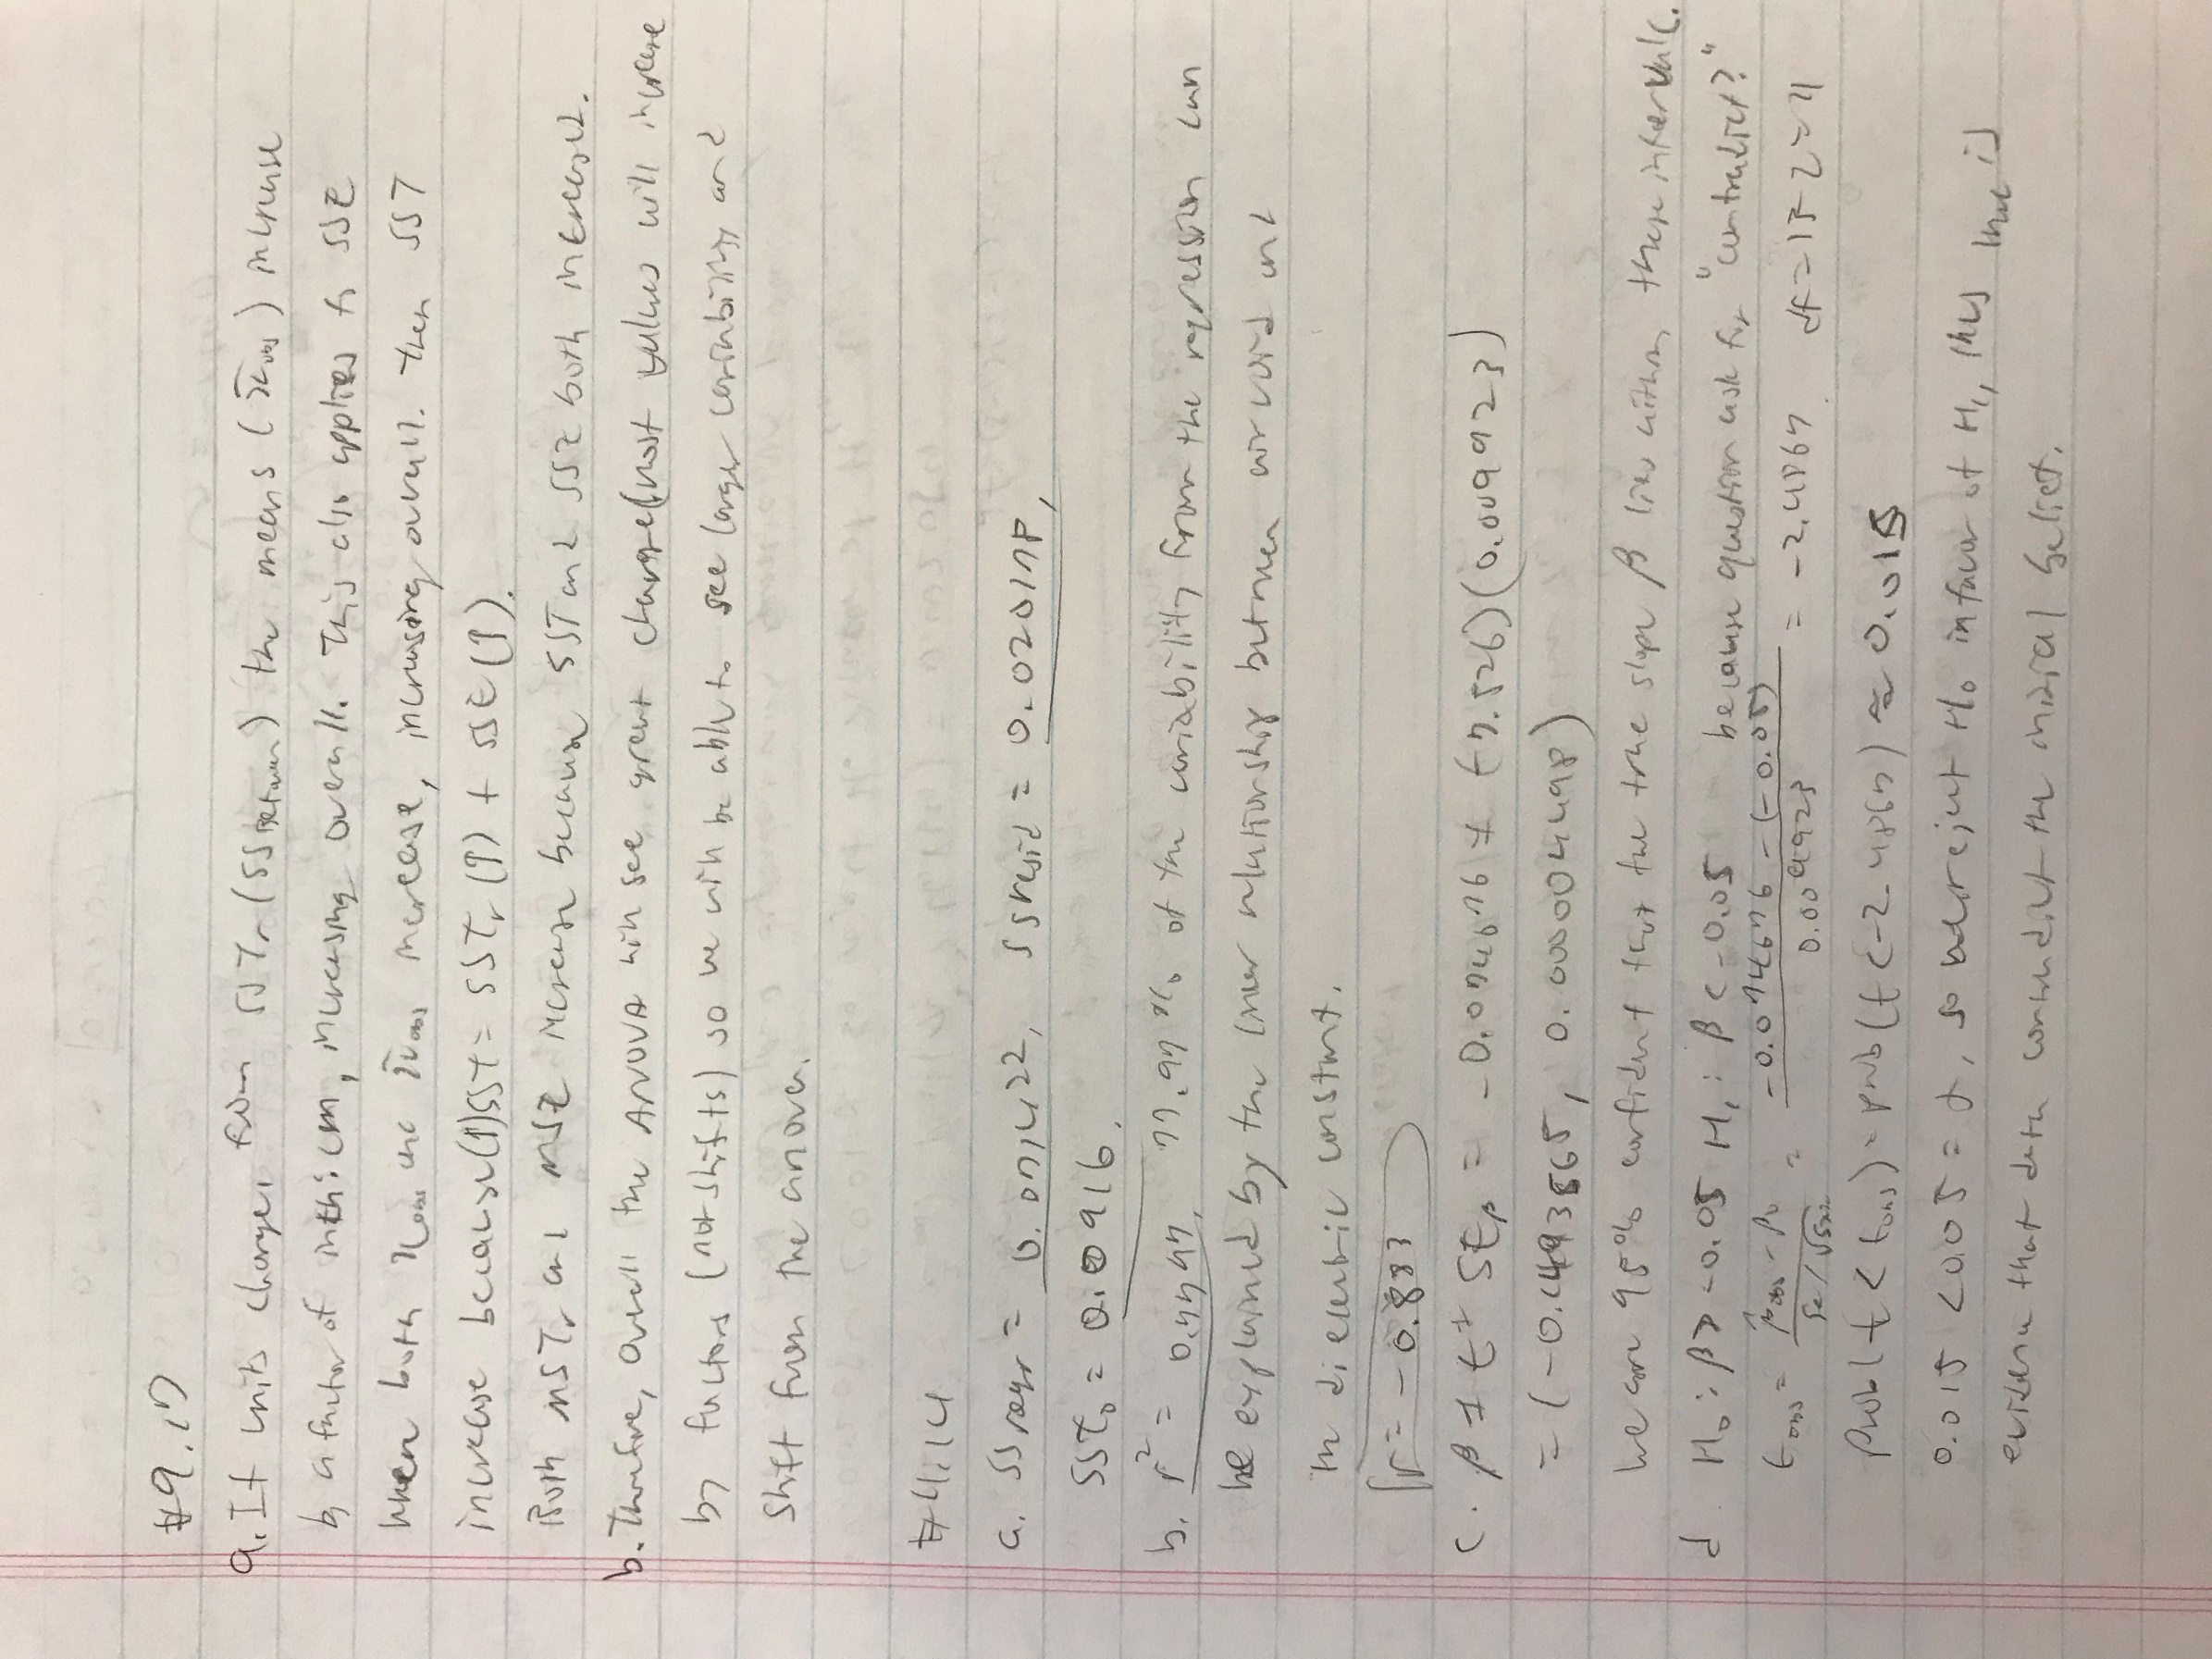 #9.17
a. If units change, from SSTr (SSBetween) the means (x̄obs) increase
by a factor of inth:cm, increasing overall. This also applies to SSE
when both xobs and x̄obs increase, increasing overall. Then SST
increase because (↑)SST = SSTr (↑) + SSE (↑).
Both MSTr and MSE increase because SST and SSE both increase.
b. Therefore, overall the ANOVA will see great change (most values will increase
by factors (not shifts) so we will be able to see larger variability and
shift from the anova.
#11.14
a. SSregr = 0.071422, SSresid = 0.020178,
SSTo = 0.0916.
b. r² = 0.7797, 77.97% of the variability from the regression can
be explained by the linear relationship between air void and
in dielectric constant.
r = -0.883
c. β ± t* SEβ = -0.074676 ± (7.526)(0.009923)
= (-0.1493565, 0.000004498)
we are 95% confident that the true slope β lies within these intervals.
d. H₀: β > -0.05 H₁: β < -0.05 because question ask for "contradict?"
tobs = β̂obs - β₀ / Se/√Sxx = -0.0746776 - (-0.05) / 0.009923 = -2.4867. df = 18-2=11
Prob(t < tobs) = prob(t < -2.4867) ≈ 0.015
0.015 < 0.05 = α, so we reject H₀ in favor of H₁, thus there is
evidence that data contradict the initial belief.